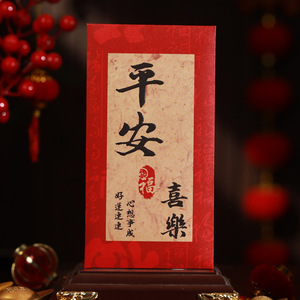 平安
福
喜樂
心想事成
好運連連